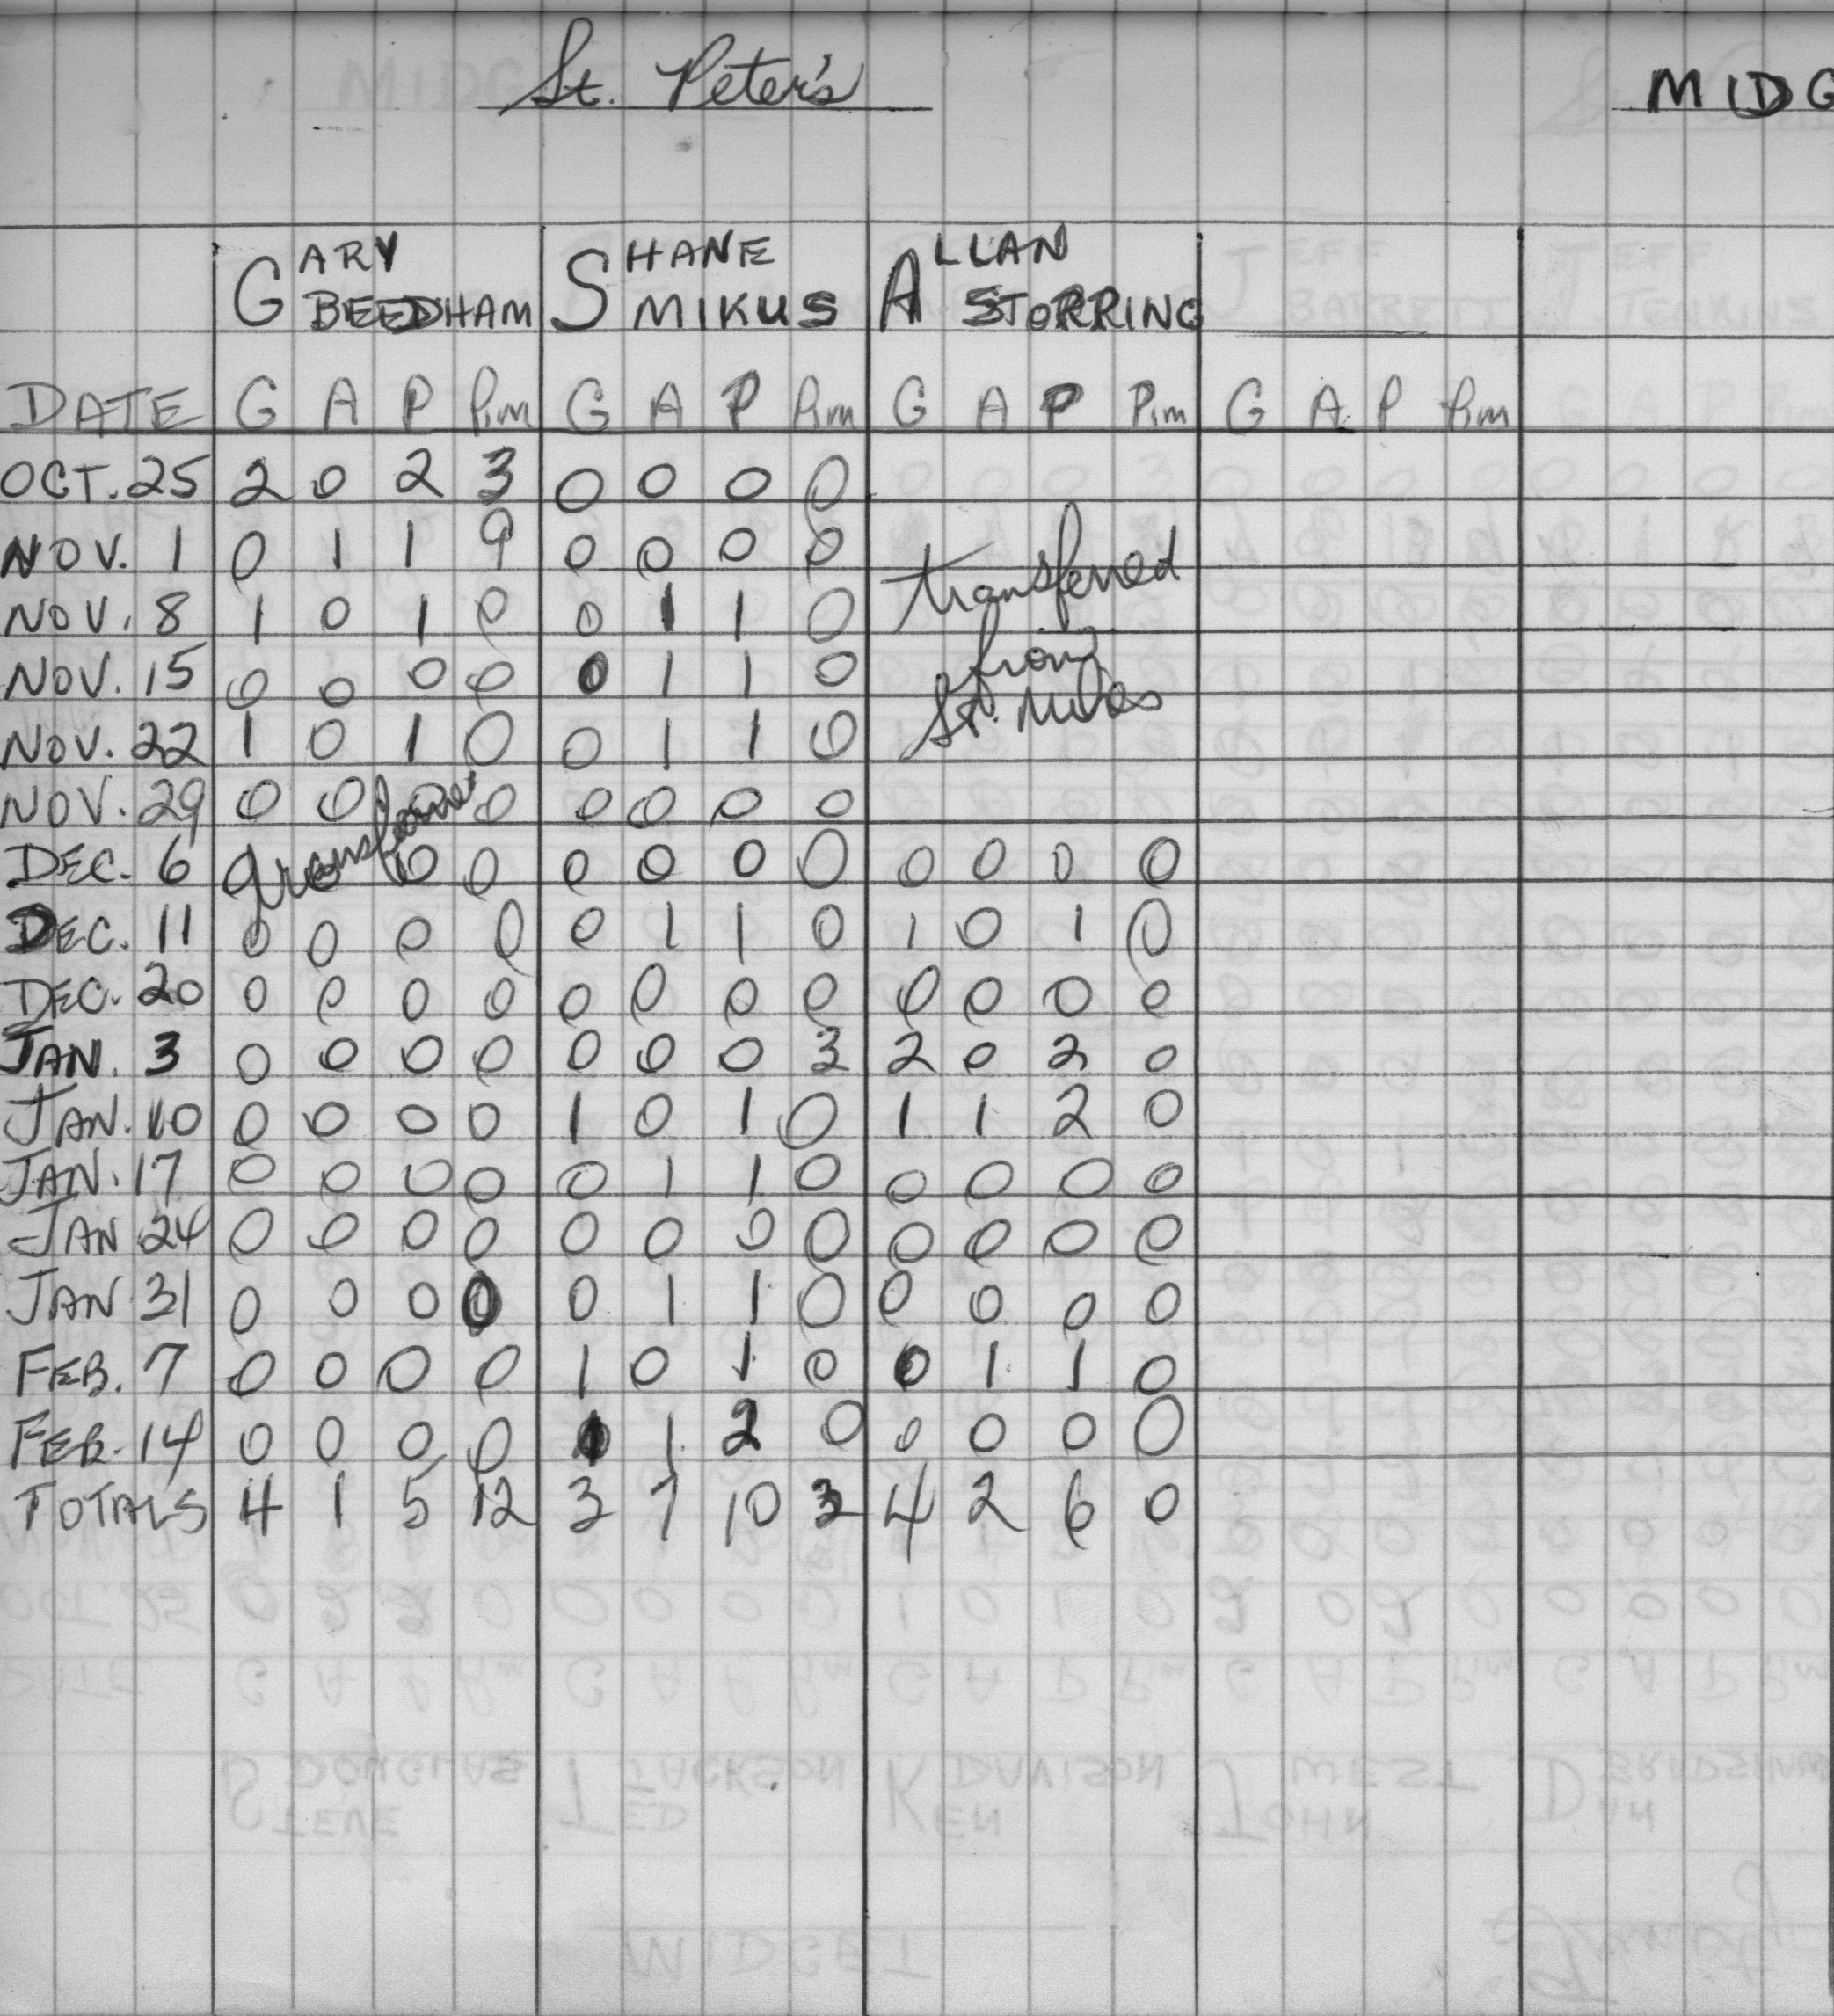 St. Peter's MIDG
GARY BEEDHAM SHANE MIKUS ALLAN STORRING
DATE G A P Pim G A P Pim G A P Pim G A P Pim
OCT. 25 2 0 2 3 0 0 0 0
NOV. 1 0 1 1 9 0 0 0 0
transferred
NOV. 8 1 0 1 0 0 1 1 0
from
NOV. 15 0 0 0 0 0 1 1 0
St.
NOV. 22 1 0 1 0 0 1 1 0
NOV. 29 0 0 0 0 0 0 0 0
DEC. 6 0 0 0 0 0 0 0 0 0 0 0
DEC. 11 0 0 0 0 0 1 1 0 1 0 1 0
DEC. 20 0 0 0 0 0 0 0 0 0 0 0 0
JAN. 3 0 0 0 0 0 0 0 3 2 0 2 0
JAN. 10 0 0 0 0 1 0 1 0 1 1 2 0
JAN. 17 0 0 0 0 0 1 1 0 0 0 0 0
JAN 24 0 0 0 0 0 0 0 0 0 0 0 0
JAN 31 0 0 0 0 0 1 1 0 0 0 0 0
FEB. 7 0 0 0 0 1 0 1 0 0 1 1 0
FEB. 14 0 0 0 0 1 1 2 0 0 0 0 0
TOTALS 4 1 5 12 3 7 10 3 4 2 6 0